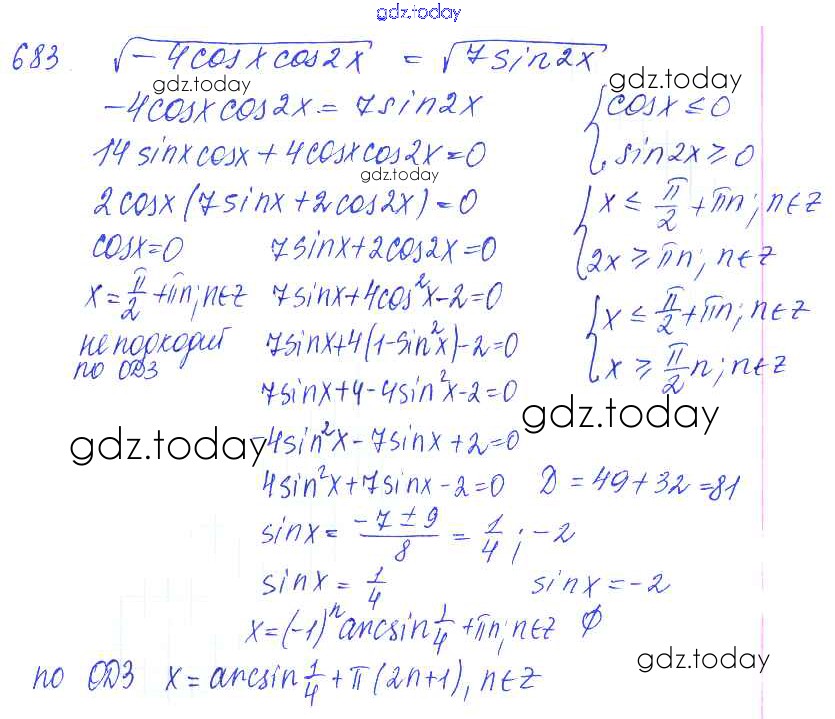 gdz.today
683 √(-4cosxcos2x) = √(7sin2x)
gdz.today gdz.today
-4cosxcos2x = 7sin2x { cosx ≤ 0
14sinxcosx + 4cosxcos2x = 0 sin2x ≥ 0
gdz.today
2cosx(7sinx + 2cos2x) = 0 { x ≤ π/2 + πn; n∈Z
cosx = 0 7sinx + 2cos2x = 0 2x ≥ πn; n∈Z
x = π/2 + πn; n∈Z 7sinx + 4cos²x - 2 = 0 { x ≤ π/2 + πn; n∈Z
не подходит 7sinx + 4(1 - sin²x) - 2 = 0 x ≥ π/2 n; n∈Z
по ОДЗ
7sinx + 4 - 4sin²x - 2 = 0
gdz.today
gdz.today -4sin²x - 7sinx + 2 = 0
4sin²x + 7sinx - 2 = 0 D = 49 + 32 = 81
sinx = (-7 ± 9)/8 = 1/4; -2
sinx = 1/4 sinx = -2
x = (-1)ⁿ arcsin 1/4 + πn; n∈Z ∅
gdz.today
по ОДЗ x = arcsin 1/4 + π(2n+1), n∈Z